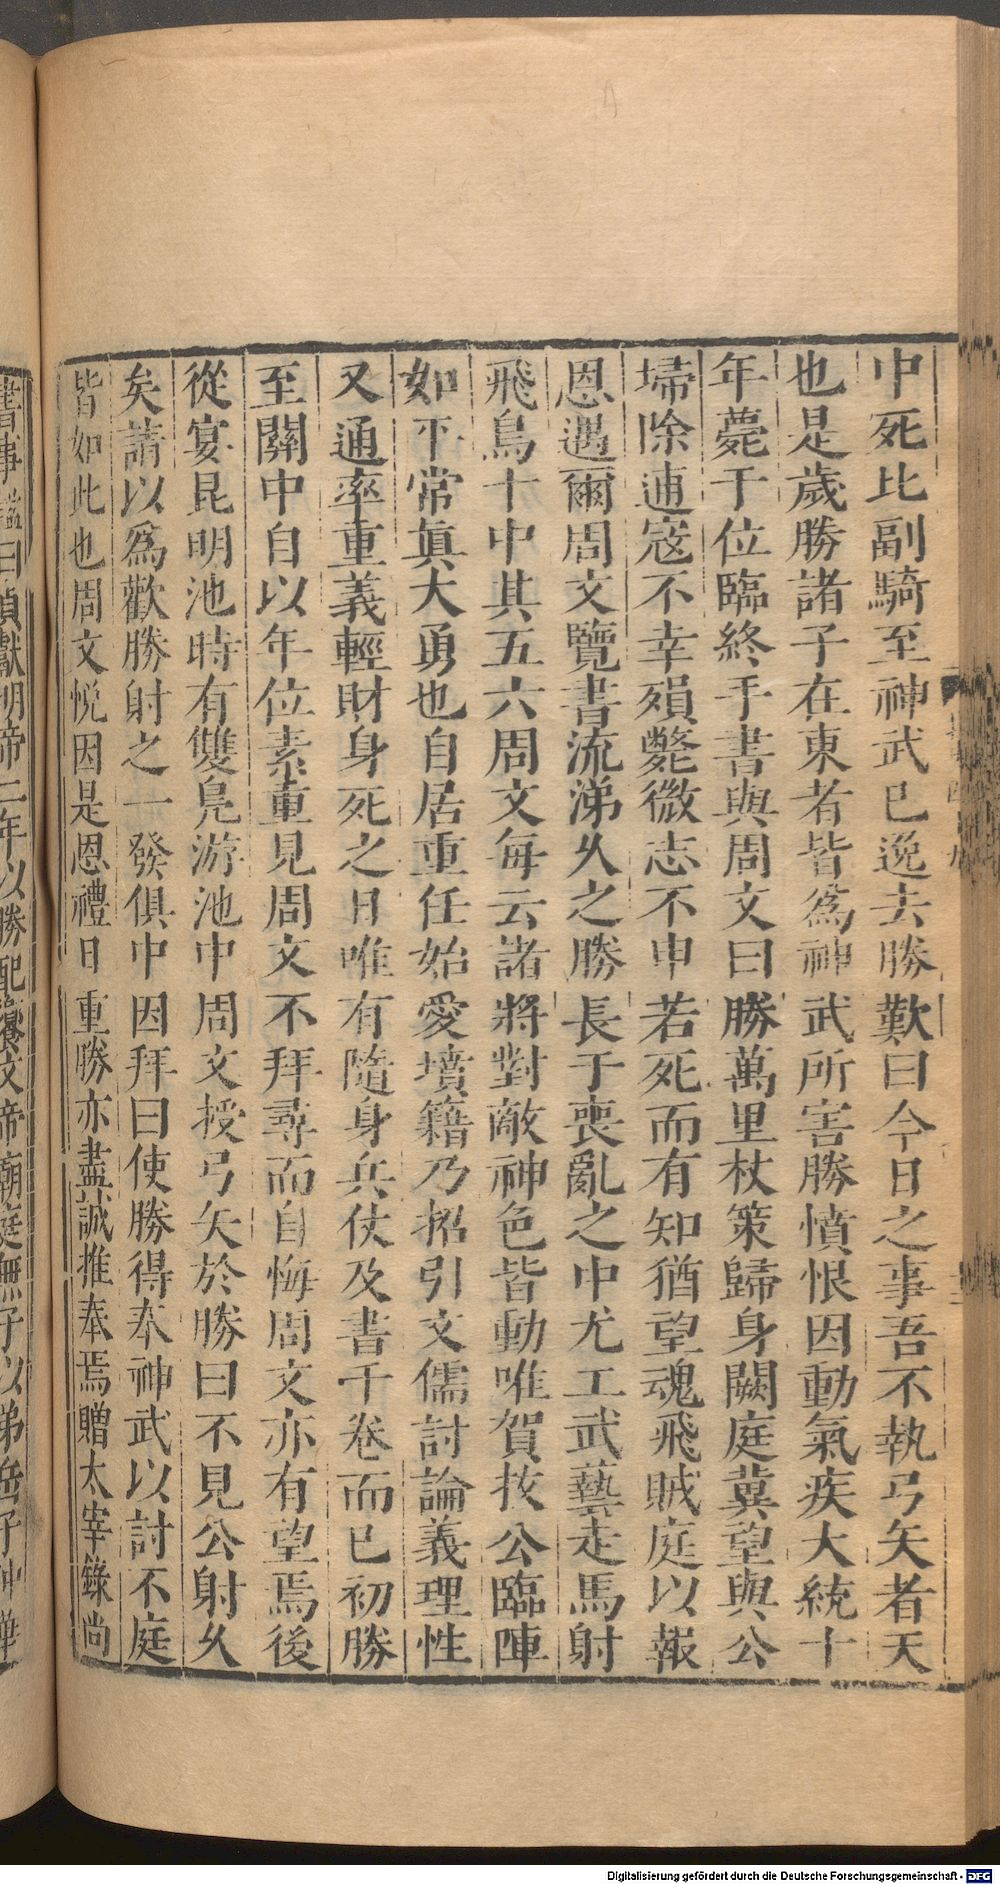 中死比副騎至神武已逸去勝歎曰今日之事吾不執弓矢者天
也是歲勝諸子在東者皆爲神武所害勝憤恨因動氣疾大統十
年薨于位臨終手書與周文曰勝萬里杖策歸身闕庭冀望與公
埽除逋寇不幸殞斃微志不申若死而有知猶望魂飛賊庭以報
恩遇爾周文覽書流涕久之勝長于喪亂之中尤工武藝走馬射
飛鳥十中其五六周文每云諸將對敵神色皆動唯賀拔公臨陣
如平常眞大勇也自居重任始愛墳籍乃招引文儒討論義理性
又通率重義輕財身死之日唯有隨身兵仗及書千卷而已初勝
至關中自以年位素重見周文不拜尋而自悔周文亦有望焉後
從宴昆明池時有雙鳧游池中周文授弓矢於勝曰不見公射久
矣請以爲歡勝射之一發俱中因拜曰使勝得奉神武以討不庭
皆如此也周文悅因是恩禮日重勝亦盡誠推奉焉贈太宰錄尚
書事諡曰貞獻明帝二年以勝配饗文帝廟庭無子以弟岳子仲華
Digitalisierung gefördert durch die Deutsche Forschungsgemeinschaft - DFG